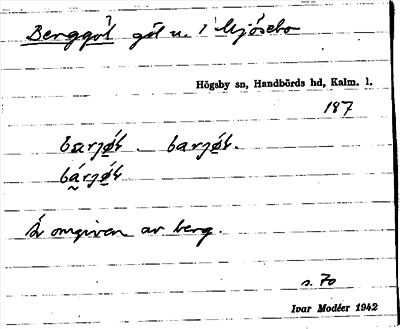 Berggöl göl n. i Mjösebo
Högsby sn, Handbörds hd, Kalm. l.
187
barjǿ̱ɫ. barjǿ̱ɫ.
bárjǿ̱ɫ
Är omgiven av berg.
s. 70
Ivar Modéer 1942